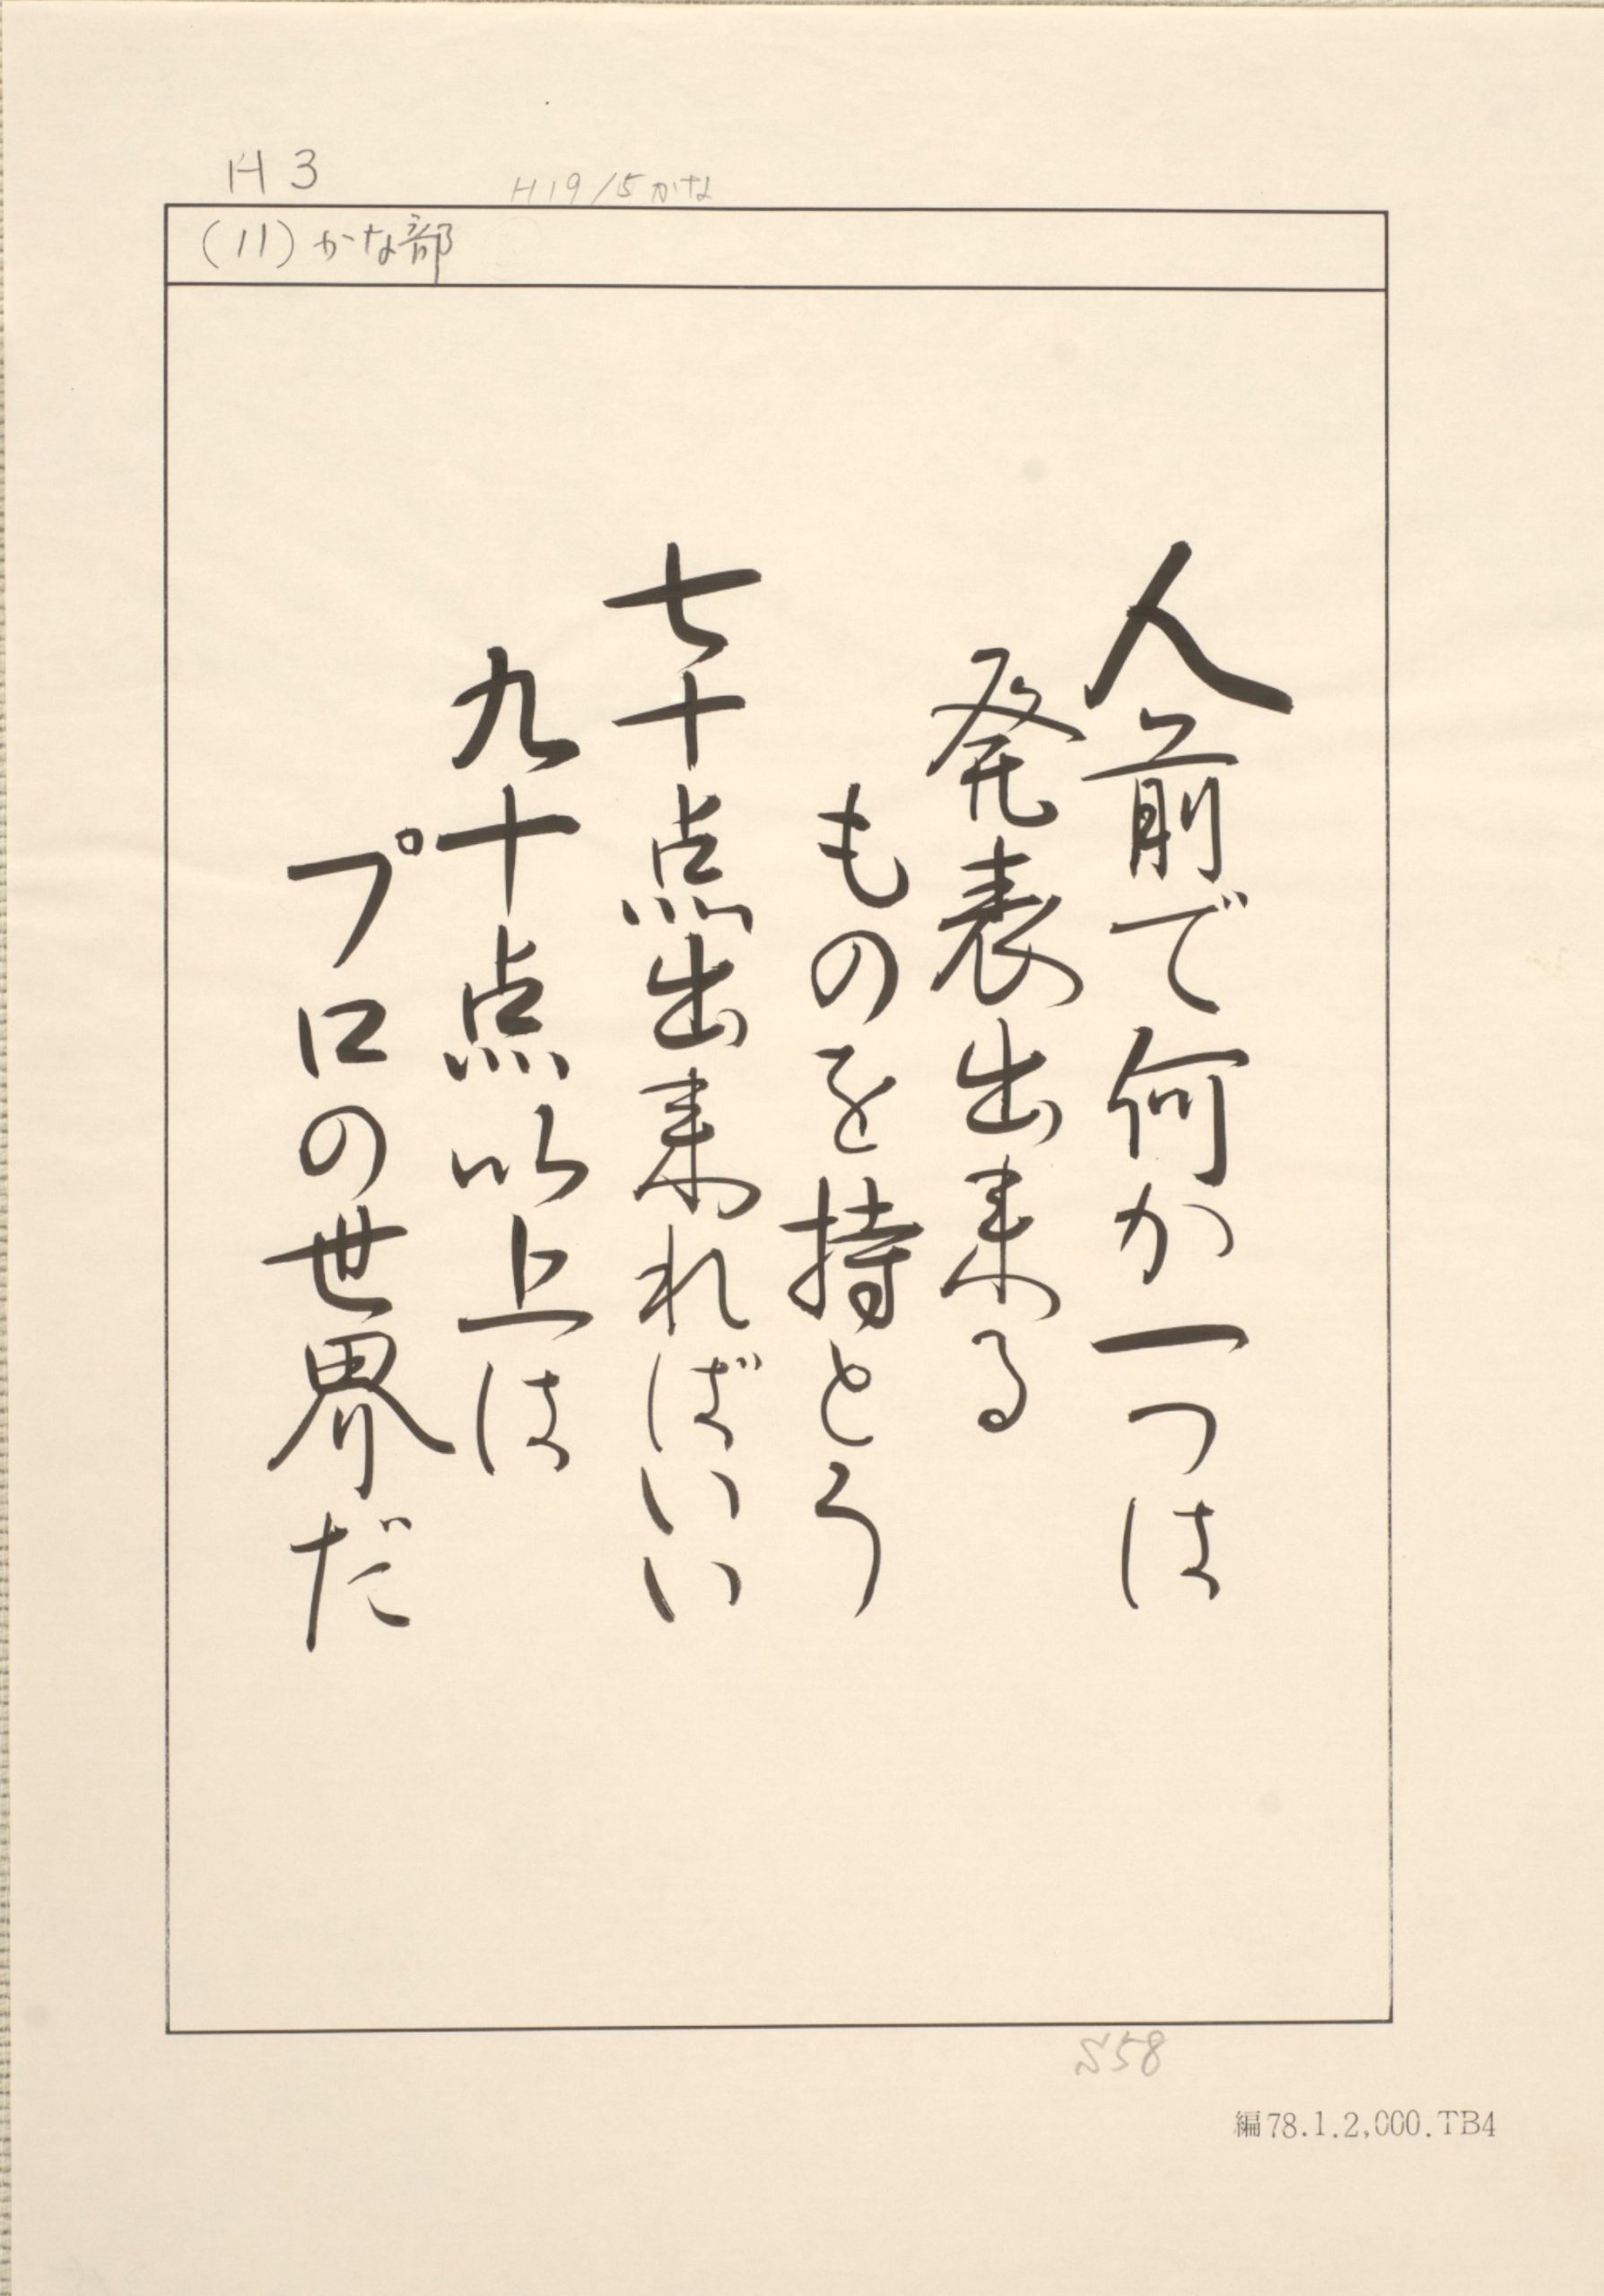 H3
H19/5かな
(11)かな部
人前で何か一つは
発表出来る
ものを持とう
七十点出来ればいい
九十点以上は
プロの世界だ
S58
編78.1.2,000.TB4